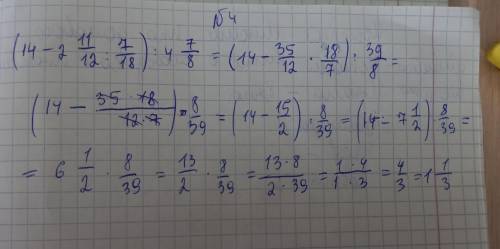 №4
(14 - 2 11/12 : 7/18) : 4 7/8 = (14 - 35/12 · 18/7) : 39/8 =
(14 - 35·18/12·7) · 8/39 = (14 - 15/2) · 8/39 = (14 - 7 1/2) · 8/39 =
= 6 1/2 · 8/39 = 13/2 · 8/39 = 13·8/2·39 = 1·4/1·3 = 4/3 = 1 1/3